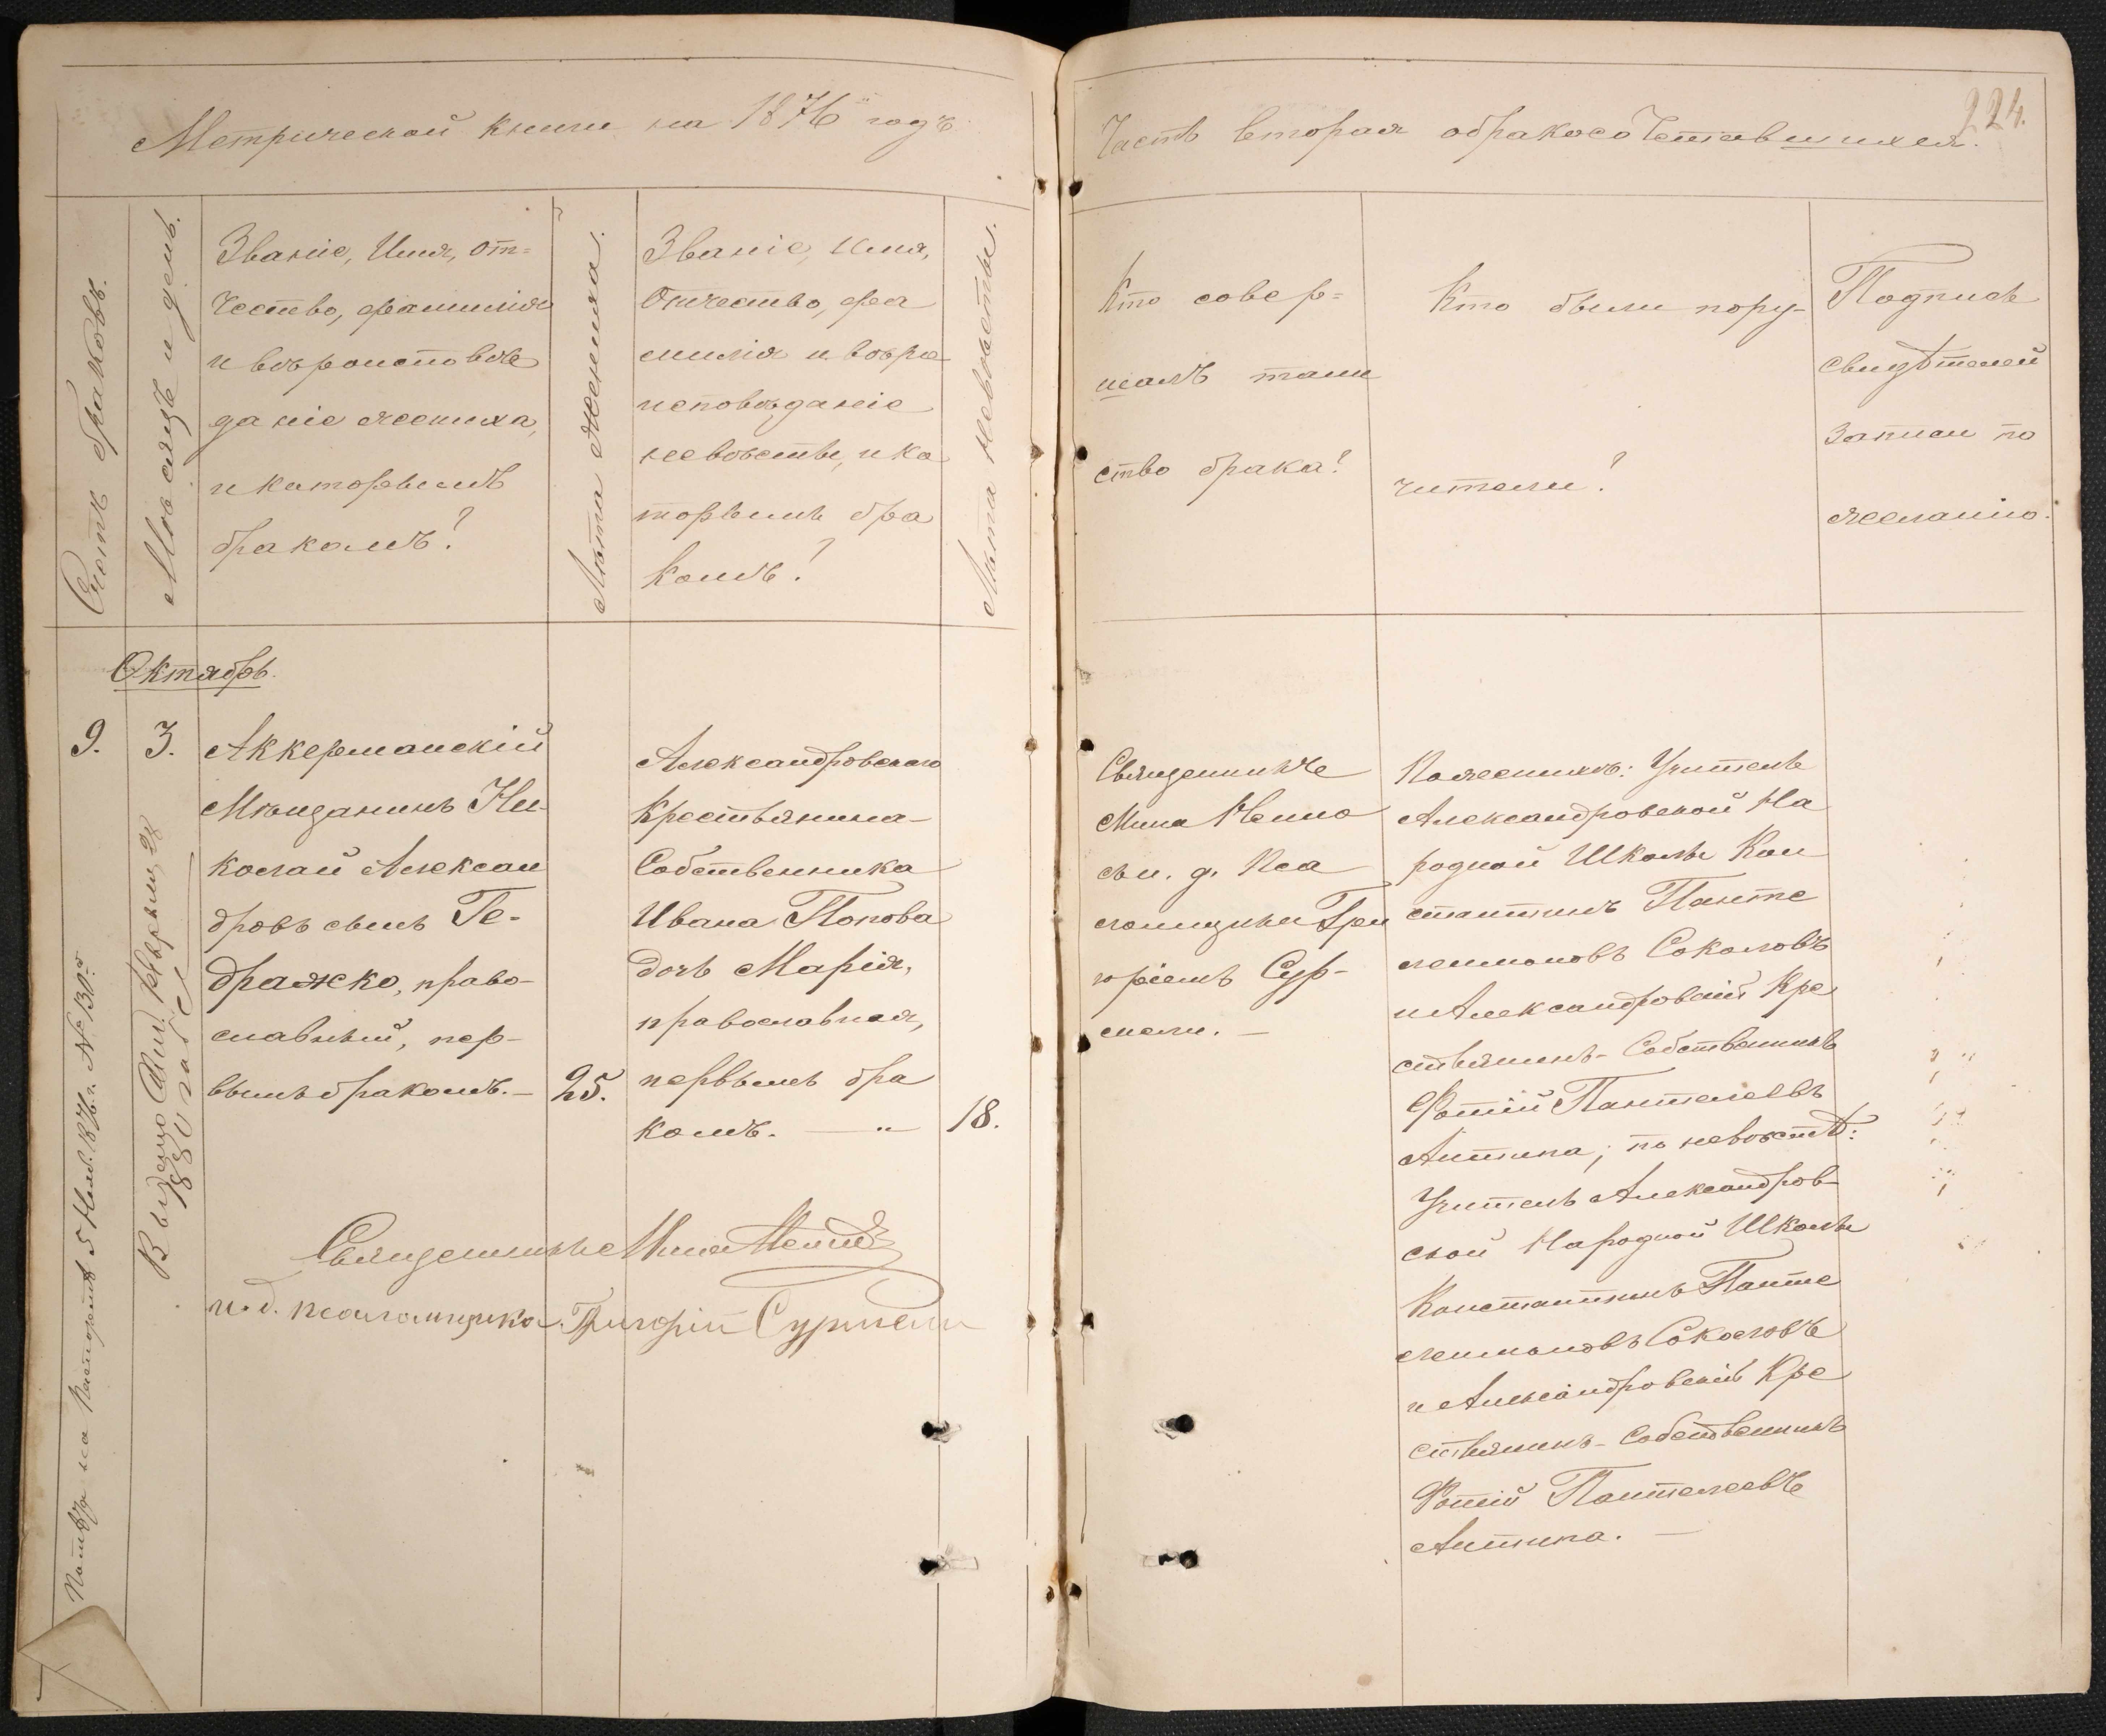 Метрической книги на 1876й годъ
Часть вторая обракосочетавшихся.
224.
Счотъ браковъ.
Мѣсяцъ и день.
Званіе, Имя, от=
чество, фамилія
и вѣроисповѣ
даніе жениха,
и каторымъ
бракомъ?
Лѣта Жениха.
Званіе, имя,
Отчество, фа
милія и вѣро
исповѣданіе
невѣсты, и ка
торымъ бра
комъ?
Лѣта невѣсты.
Кто совер=
шалъ таин
ство брака?
Кто были пору-
чители?
Подпись
свидѣтелей
записи по
желанію.
Октябрь.
9.
3.
Аккерманскій
Мѣщанинъ Ни-
колай Алексан
дровъ сынъ Ге-
дражко, право-
славный, пер-
вымъ бракомъ.-
25.
Александровскаго
Крестьянина-
Собственника
Ивана Попова
дочь Марія,
православная,
первымъ бра
комъ. — „
18.
Священникъ
Мина
съ и. д. Пса
ломщика Гри
горіемъ Сур-
По женихѣ: Учитель
Александровской На
родной Школы Кон
стантинъ Панте
леимоновъ Соколовъ
и Александровскій Кре
стьянинъ-Собственникъ
Фотій Пантелеевъ
Антипа; по невѣстѣ:
Учитель Александров-
ской Народной Школы
Константинъ Панте
леимоновъ Соколовъ
и Александровскій Кре
стьянинъ-Собственникъ
Фотій Пантелеевъ
Антипа. —
Священникъ Мина
и.д. псаломщика Григорій
на Паспортѣ 5 1876 г. № 130